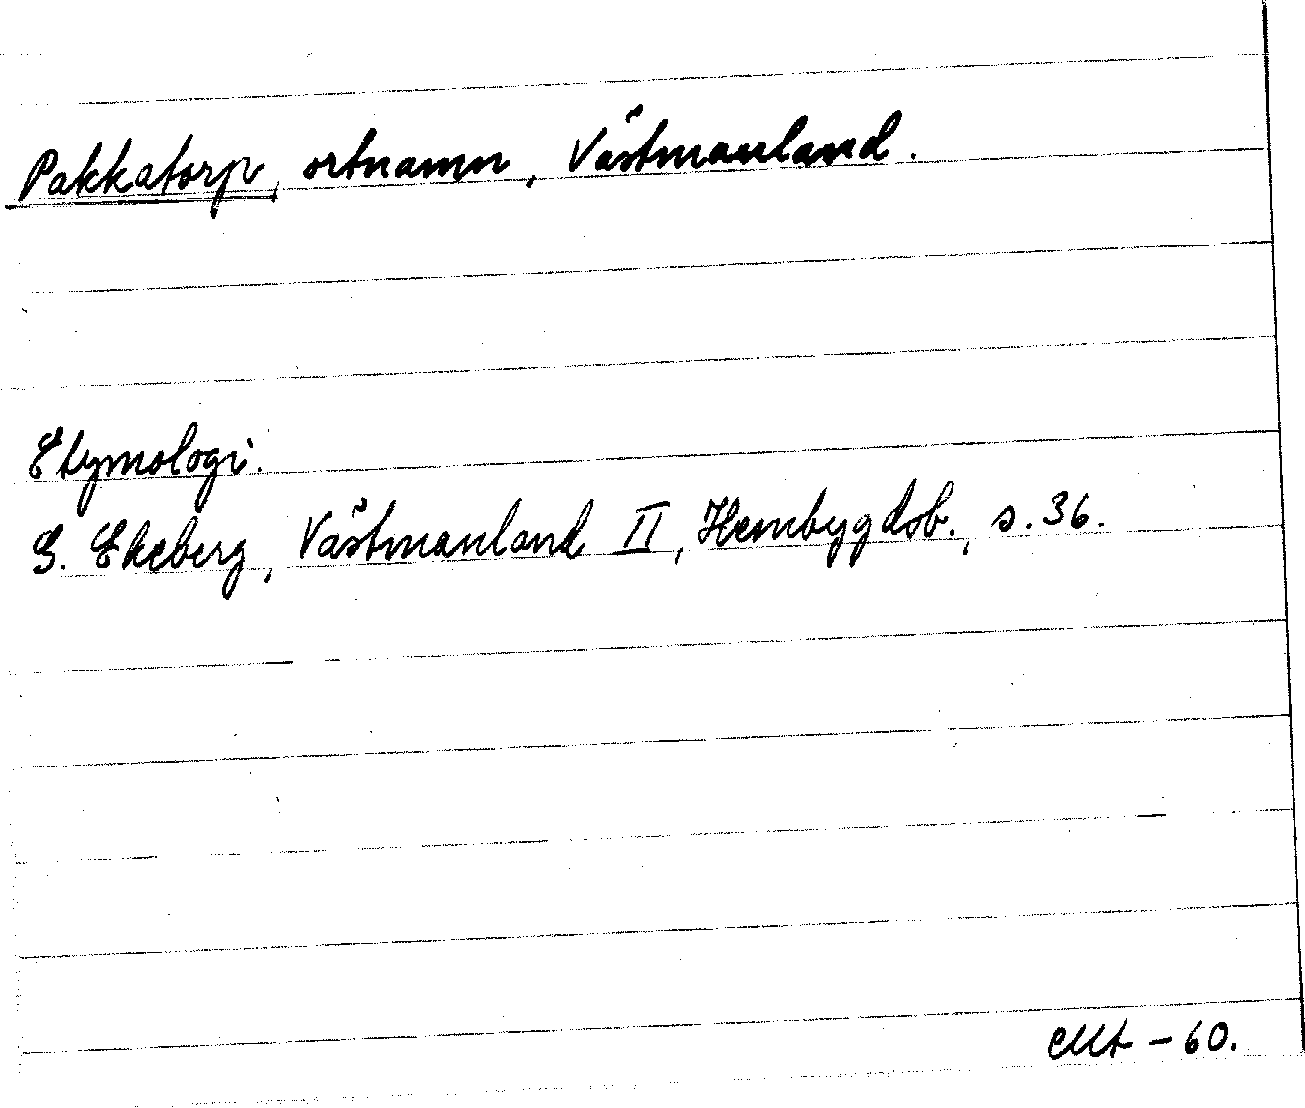 Pakkatorp, ortnamn, Västmanland.
Etymologi.
G. Ekeberg, Västmanland II, Hembygdsb., s. 36.
- 60.